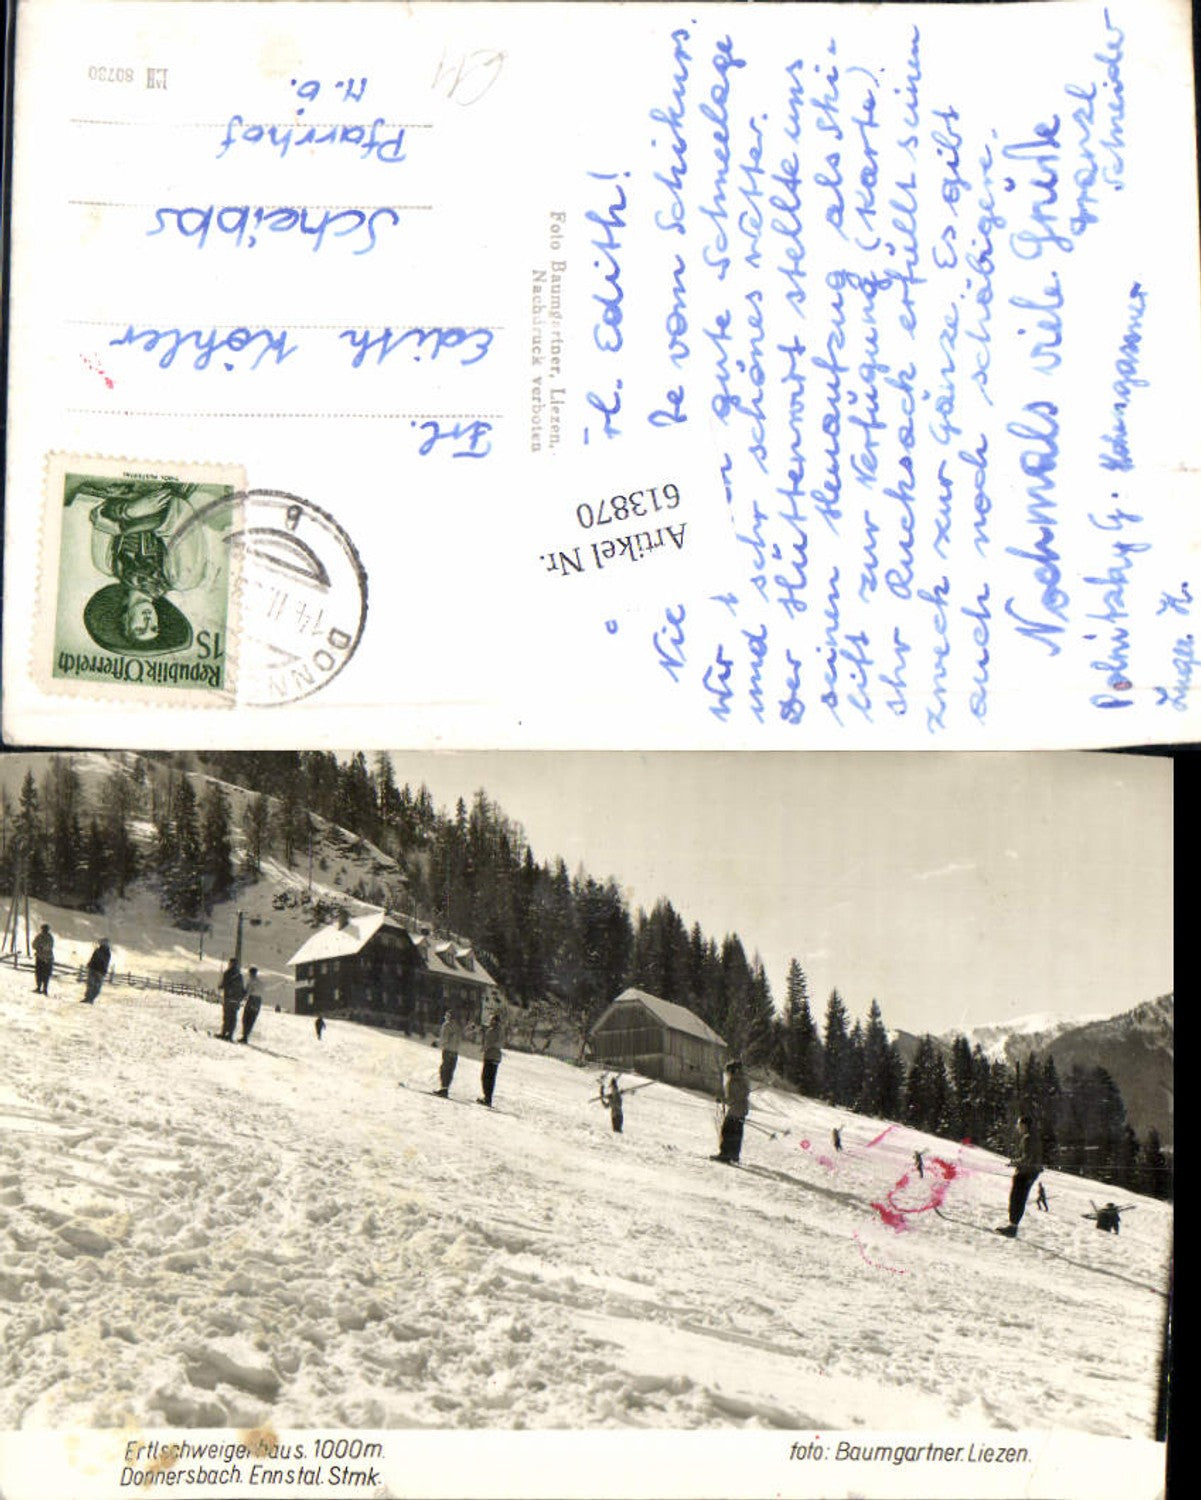 Frl.
Edith Köhler
Scheibbs
Pfarrhof
N.Ö.
80730
Foto Baumgartner, Liezen.
Nachdruck verboten
Artikel Nr.
613870
Republik Österreich
1S
DONN
14.II.
l. Edith!
vom Schikurs.
Wir gute Schneelage
und sehr schönes Wetter.
Der Hüttenwirt stellte uns
seinen Heuaufzug als Ski-
lift zur Verfügung (Karte).
Ihr Rucksack erfüllt seinen
Zweck zur Gänze. Es gibt
auch noch schäbigere.
Nochmals viele Grüße
Schneider
Ertlschweigerhaus. 1000m.
Donnersbach. Ennstal. Stmk.
foto: Baumgartner. Liezen.